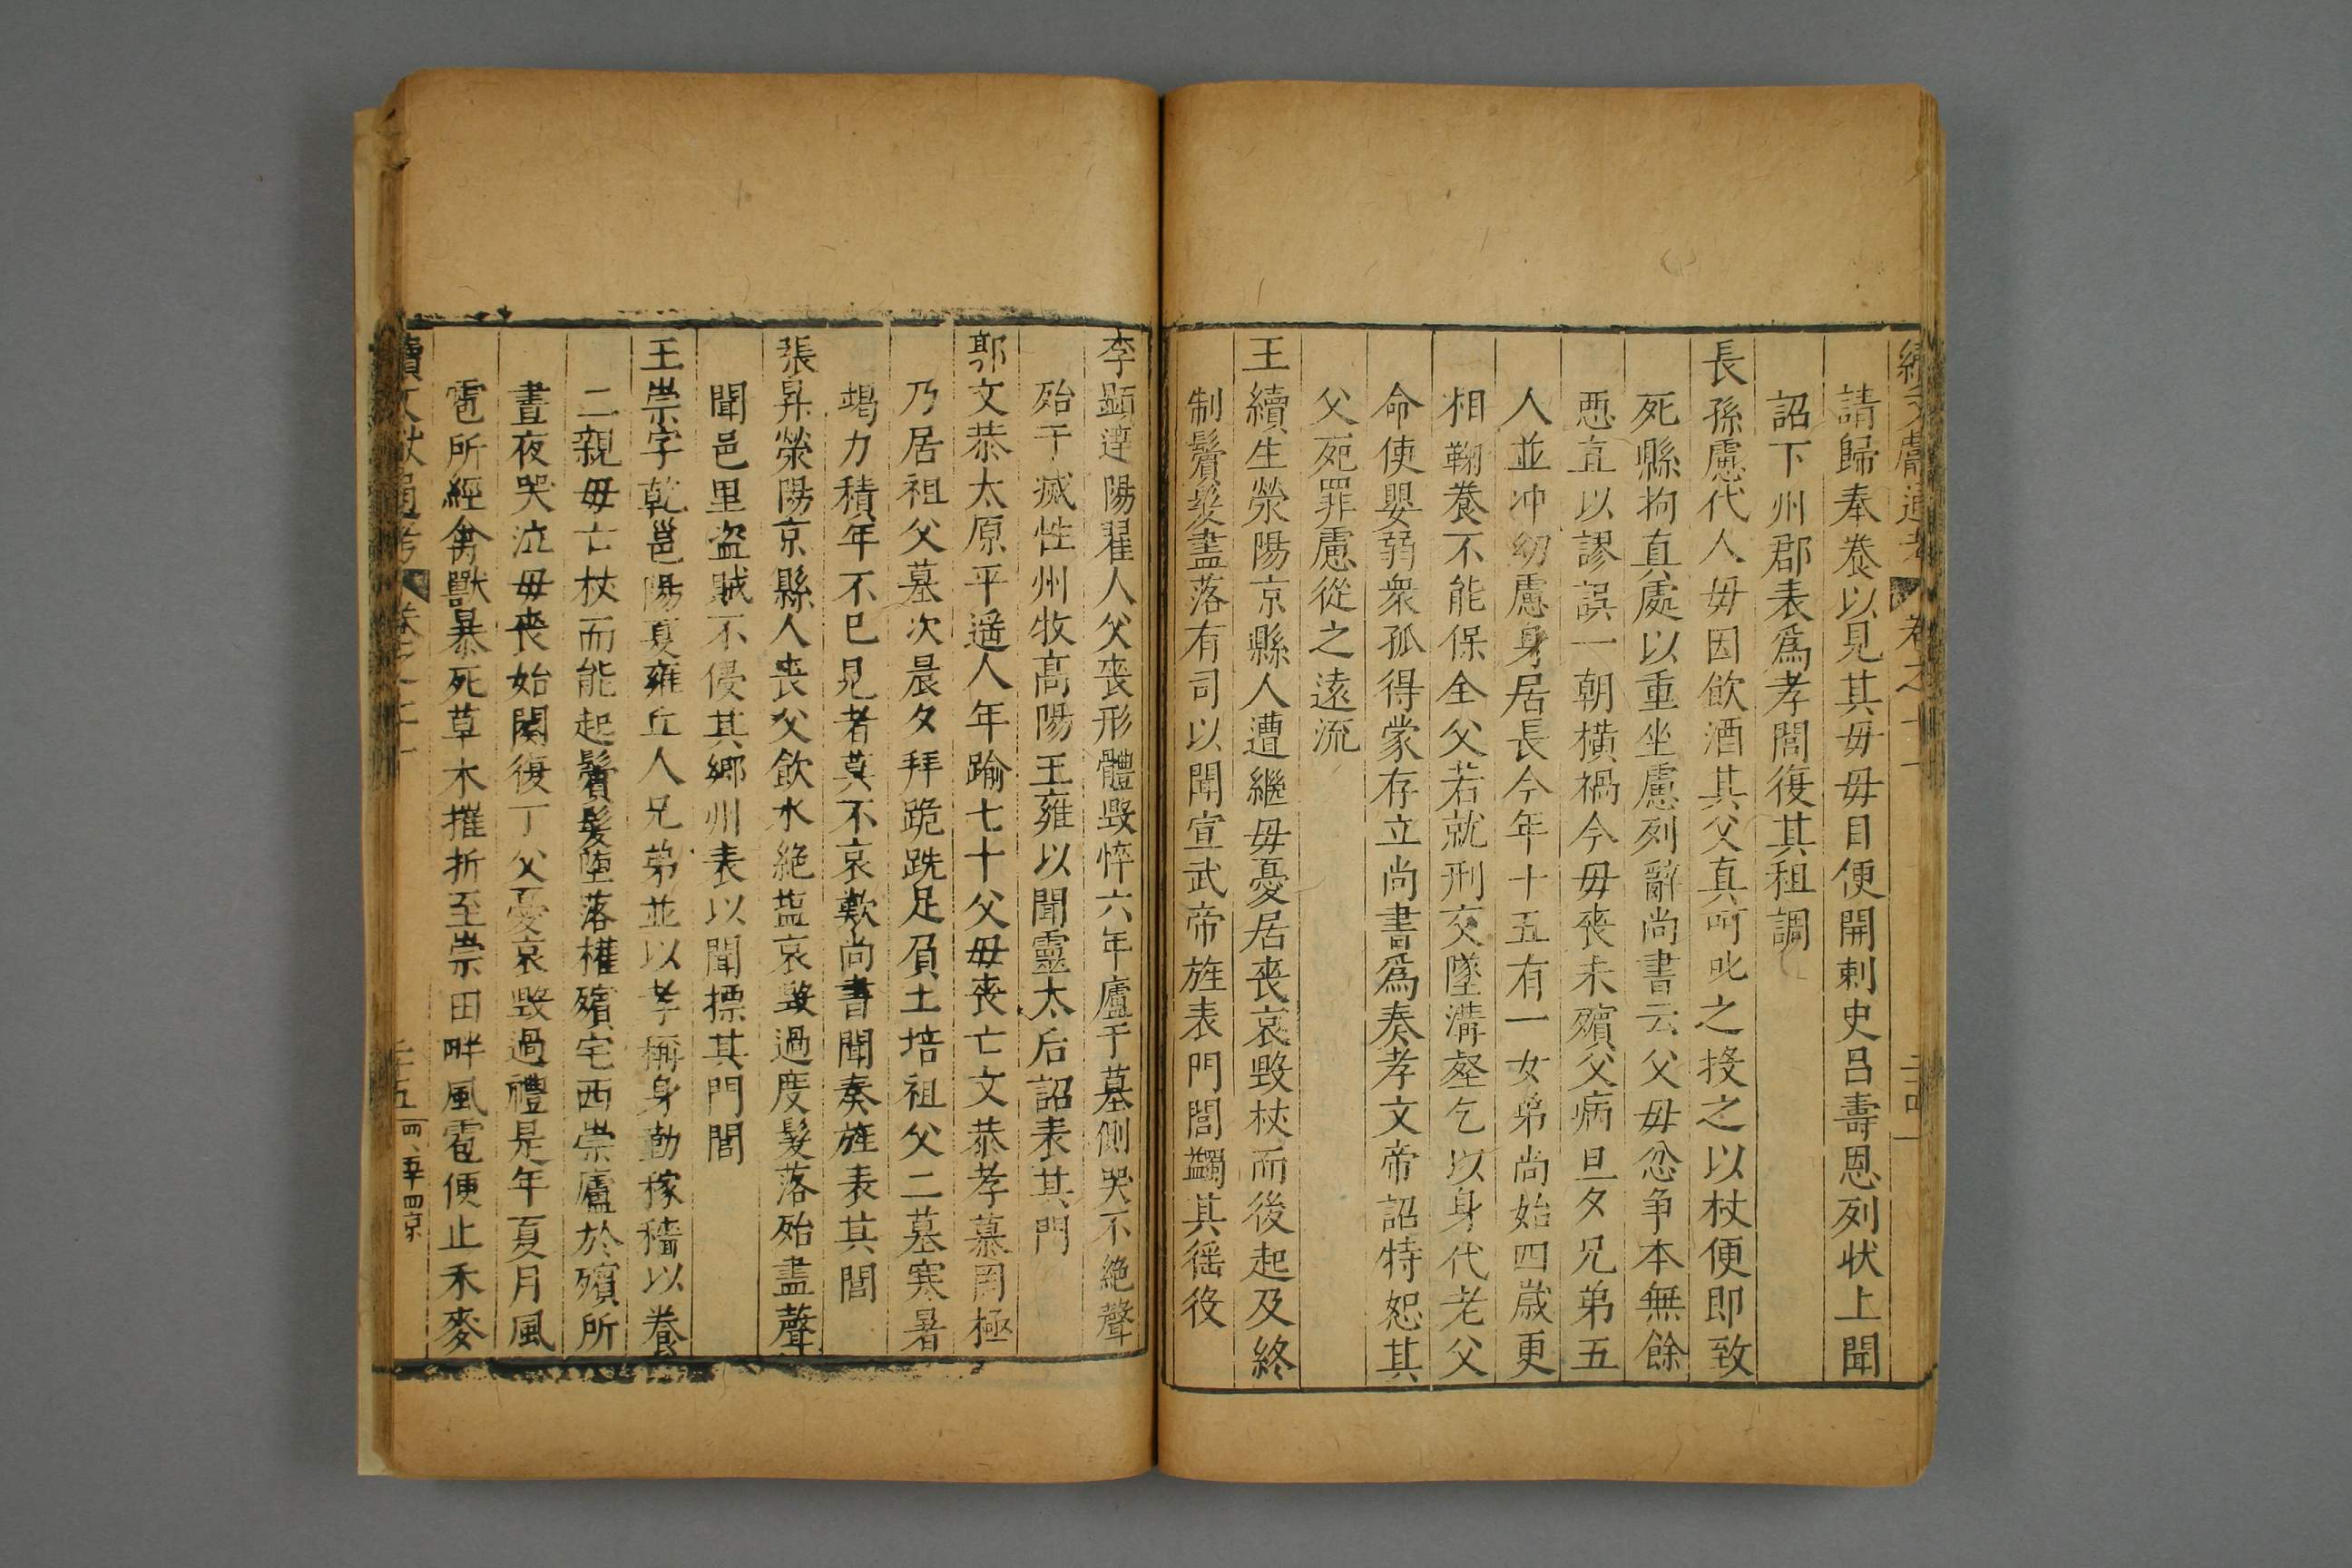 續文獻通考 卷之七十一 二十四
請歸奉養以見其毋毋目便開刺史呂壽恩列狀上聞
詔下州郡表爲孝閭復其租調
長孫慮代人毋因飲酒其父真呵叱之採之以杖便即致
死縣拘真處以重坐慮列辭尚書云父毋忿爭本無餘
惡直以謬誤一朝橫禍今毋喪未殯父病旦夕兄弟五
人並冲幼慮身居長今年十五有一女弟尚始四歲更
相鞠養不能保全父若就刑交墜溝壑乞以身代老父
命使嬰弱衆孤得蒙存立尚書爲奏孝文帝詔特恕其
父死罪慮從之遠流
王續生滎陽京縣人遭繼毋憂居喪哀毀杖而後起及終
制鬢髮盡落有司以聞宣武帝旌表門閭蠲其徭役
李顯達陽翟人父喪形體毀悴六年廬于墓側哭不絶聲
殆于滅性州牧高陽王雍以聞靈太后詔表其門
郭文恭太原平遥人年踰七十父毋喪亡文恭孝慕罔極
乃居祖父墓次晨夕拜跪跣足負土培祖父二墓寒暑
竭力積年不已見者莫不哀歎尚書聞奏旌表其閭
張昇滎陽京縣人喪父飲水絶塩哀毀過度髮落殆盡聲
聞邑里盜賊不侵其鄉州表以聞標其門閭
王崇字乾邕陽夏雍丘人兄弟並以孝稱身勤稼穡以養
二親毋亡杖而能起鬢髮墮落權殯宅西崇廬於殯所
晝夜哭泣毋喪始闋復丁父憂哀毀過禮是年夏月風
雹所經禽獸暴死草木摧折至崇田畔風雹便止禾麥
續文獻通考 卷之 二十五